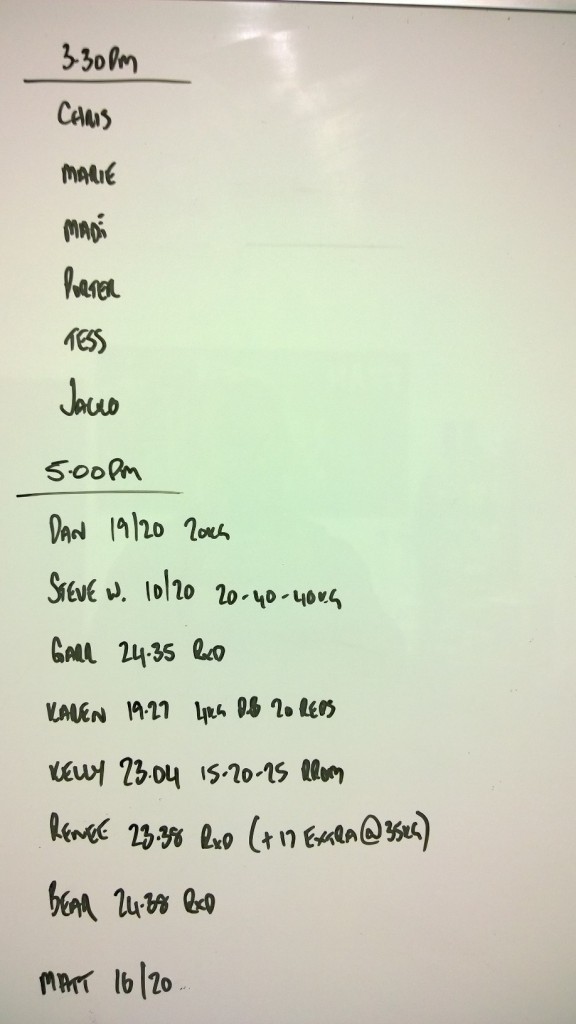 3.30pm
CHRIS
MARIE
MADi
PORTER
TESS
JACKO
5.00pm
DAN 19/20 20KG
STEVE W. 10/20 20-40-40KG
GARR 24.35 RXD
KAREN 19.27 4KG D.B 20 REPS
KELLY 23.04 15-20-25 RROM
RENEE 23.38 RXD (+17 EXTRA @ 35KG)
BEAR 24.38 RXD
MATT 16/20